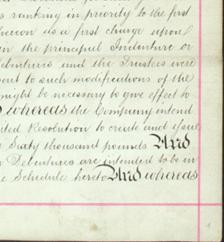 ranking in priority to the first
hereon as a first charge upon
the principal Indenture or
Debentures and the Trustees were
ent to such modifications of the
might be necessary to give effect to
whereas the Company intend
ited Resolution to create and issue
Sixty thousand pounds And
Debentures are intended to be in
e Schedule hereto And whereas